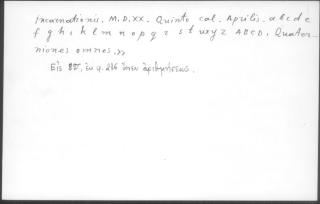 Incarnationis. M.D.XX. Quinto cal. Aprilis. a b c d e
f g h i k l m n o p q r s t u x y z A B C D. Quater-
niones omnes.»
Εἰς 8º, ἐκ φ. 216 ἄνευ ἀριθμήσεως.